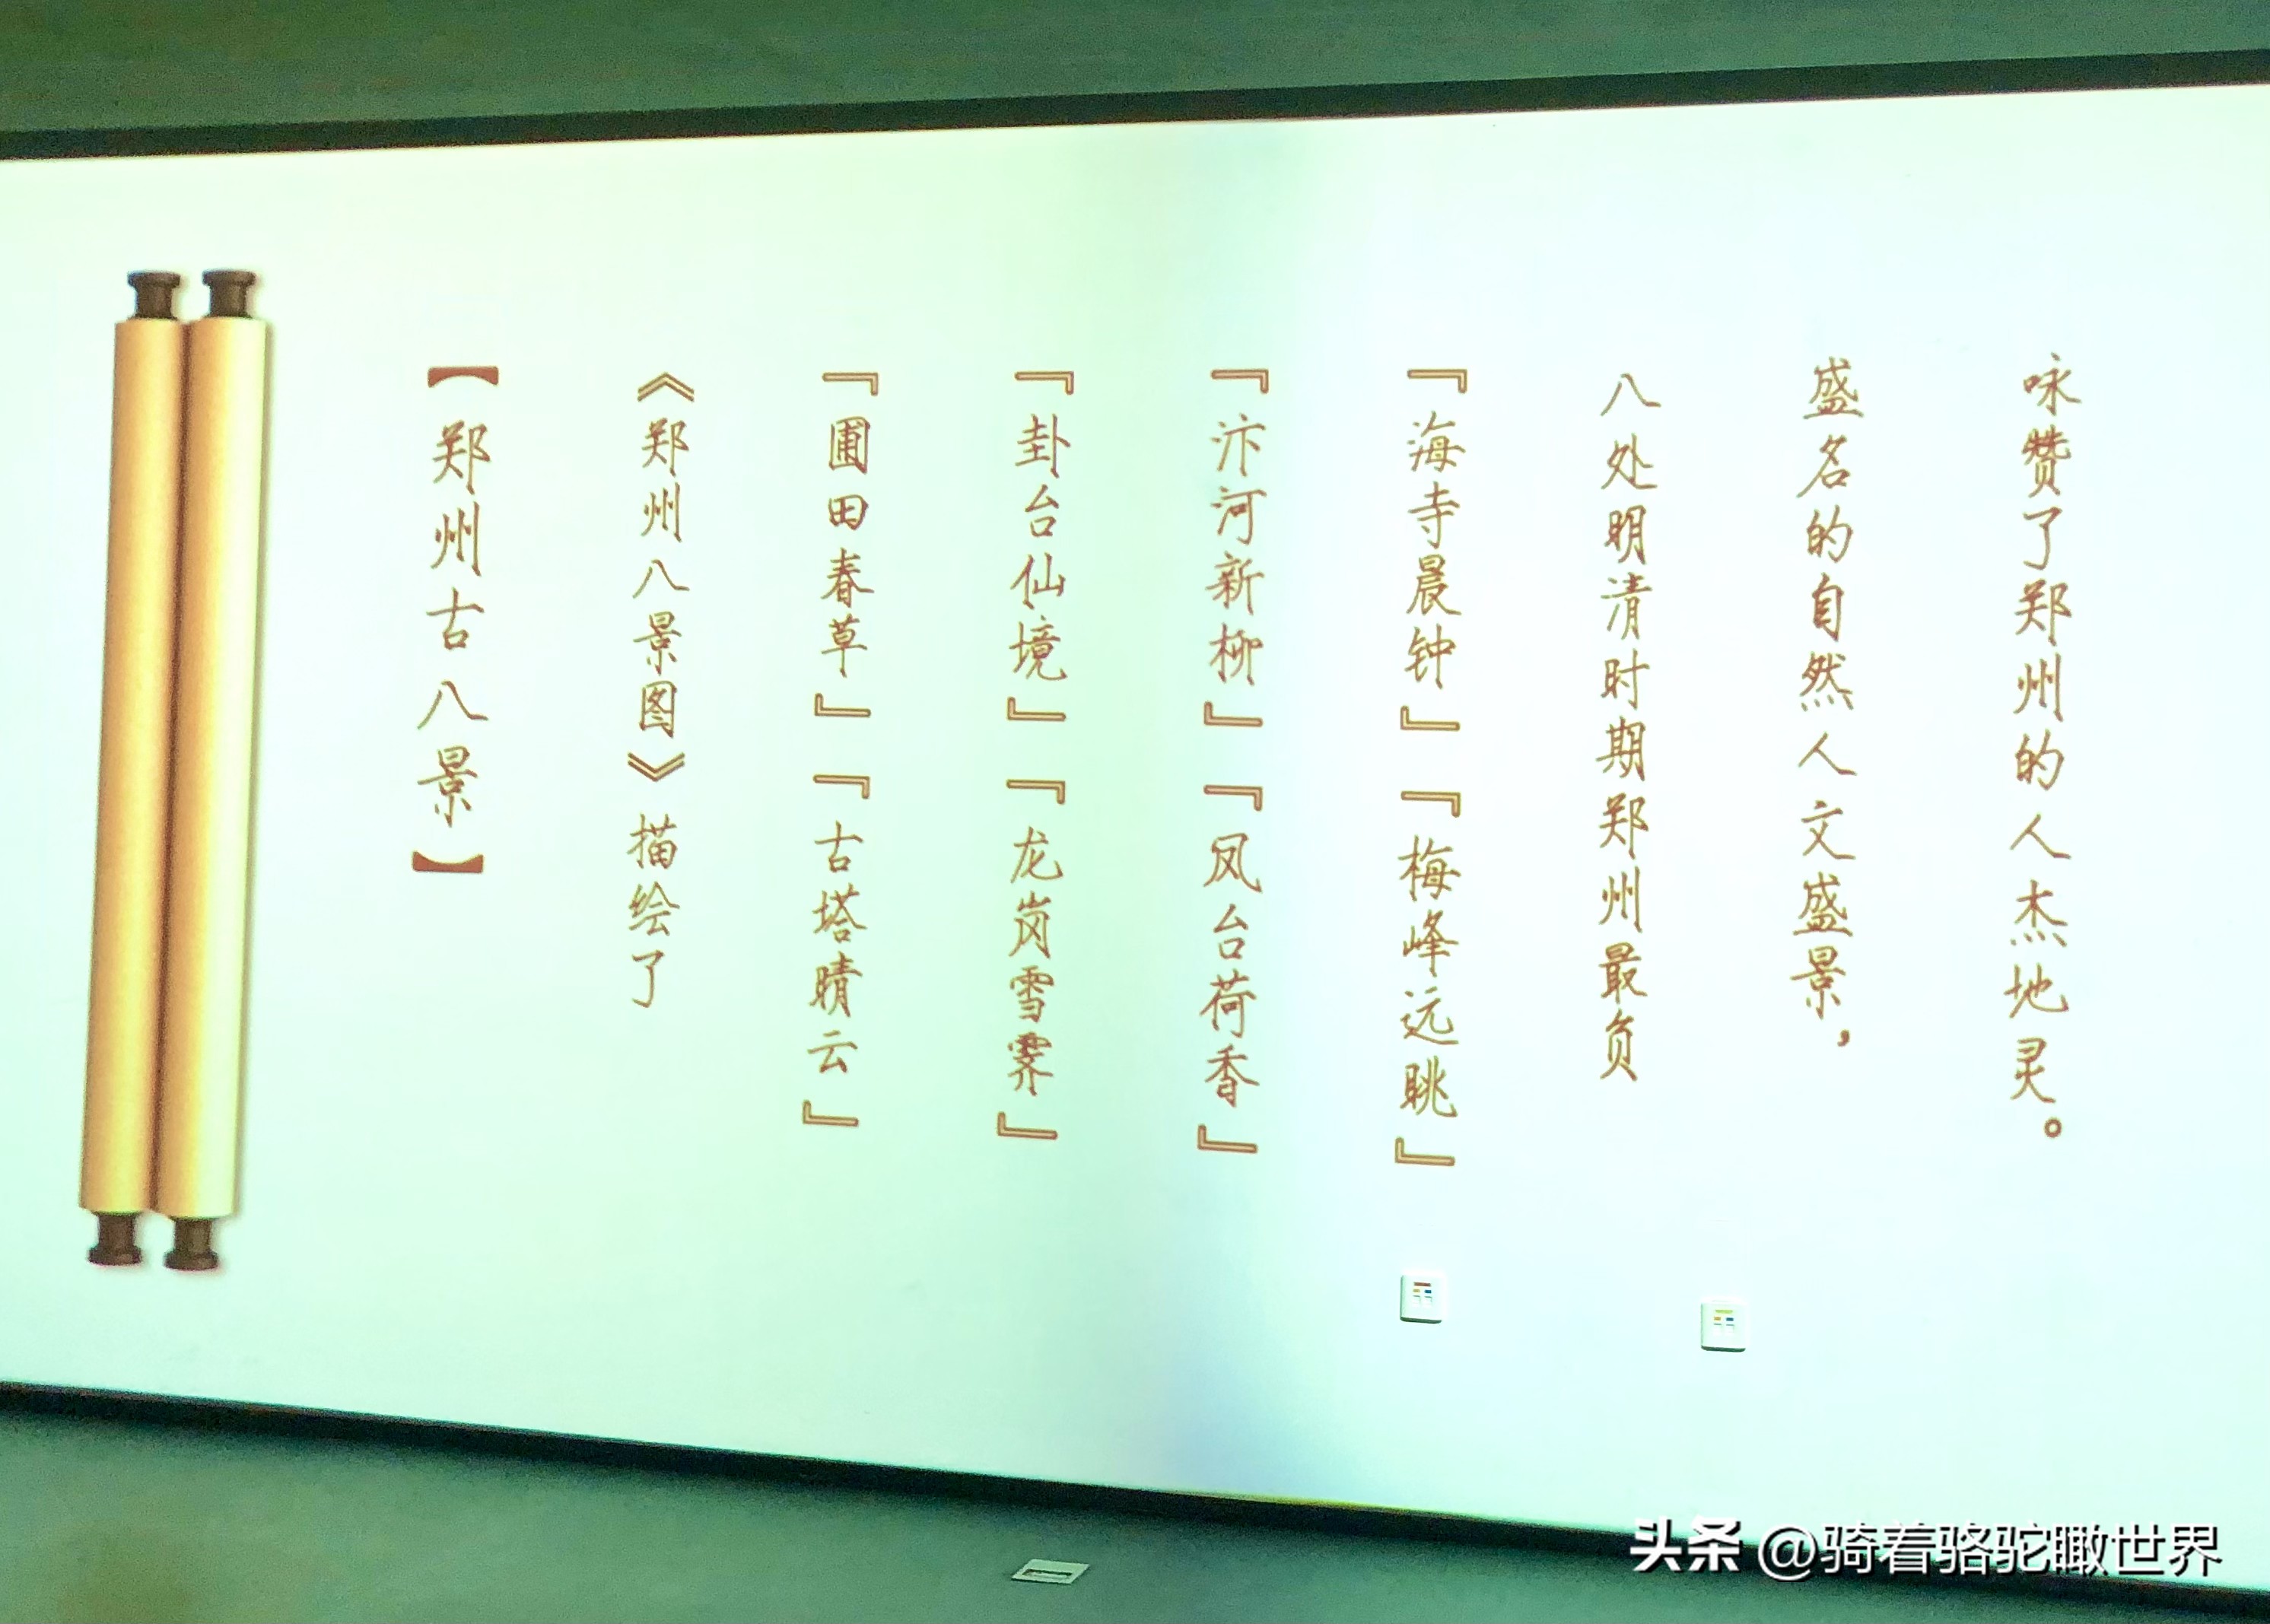 【郑州古八景】
《郑州八景图》描绘了
『圃田春草』『古塔晴云』
『卦台仙境』『龙岗雪霁』
『汴河新柳』『凤台荷香』
『海寺晨钟』『梅峰远眺』
八处明清时期郑州最负
盛名的自然人文盛景，
咏赞了郑州的人杰地灵。
头条 @骑着骆驼瞰世界